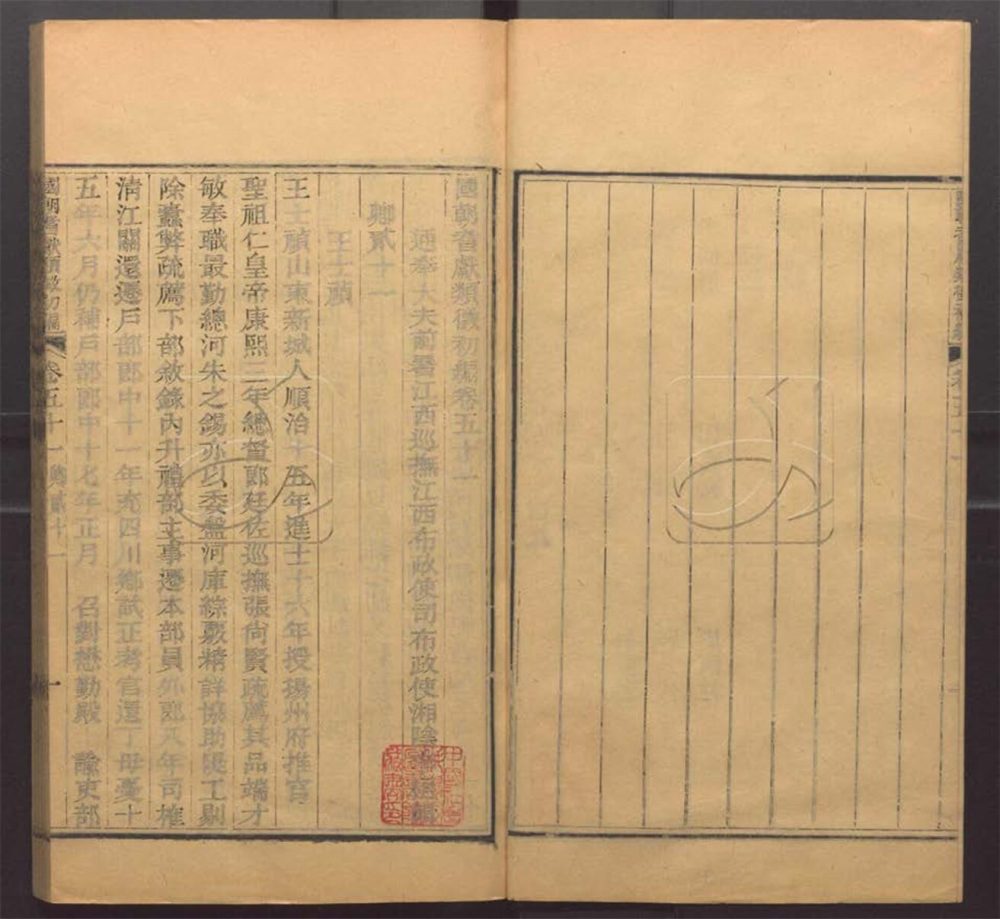 國朝耆獻類徵初編卷五十一
通奉大夫前署江西巡撫江西布政使司布政使湘陰李桓輯
卿貳十一
王士禎
王士禎山東新城人順治十五年進士十六年授揚州府推官
聖祖仁皇帝康熙三年總督郎廷佐巡撫張尚賢疏薦其品端才
敏奉職最勤總河朱之錫亦以委盤河庫綜覈精詳協助隄工剔
除蠹弊疏薦下部敘錄內升禮部主事遷本部員外郎八年司榷
清江關還遷戶部郎中十一年充四川鄉試正考官還丁母憂十
五年六月仍補戶部郎中十七年正月 召對懋勤殿 諭吏部
國朝耆獻類徵初編 卷五十一 卿貳十一 一